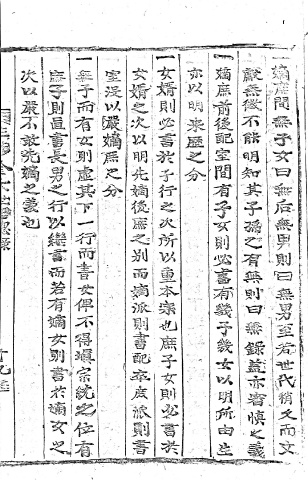 一嫡庶間無子女曰无后無男則曰無男至若世代稍久而文
獻無徵不能明知其子孫之有無則曰無錄盖亦省愼之義
一嫡庶前後配室間有子女則必書有幾子幾女以明所由生
亦以明來歷之分
一女婿則必書於子行之次所以重本宗也庶子女則必書於
女婿之次以明先嫡後庶之别而嫡派則書配卒庶派則書
室没以嚴嫡庶之分
一無子而有女則虛其下一行而書女俾不得塡宗統之位有
庶子則直書長男之行以繼書而若有嫡女則書於嫡女之
次以嚴不敢先嫡之義也